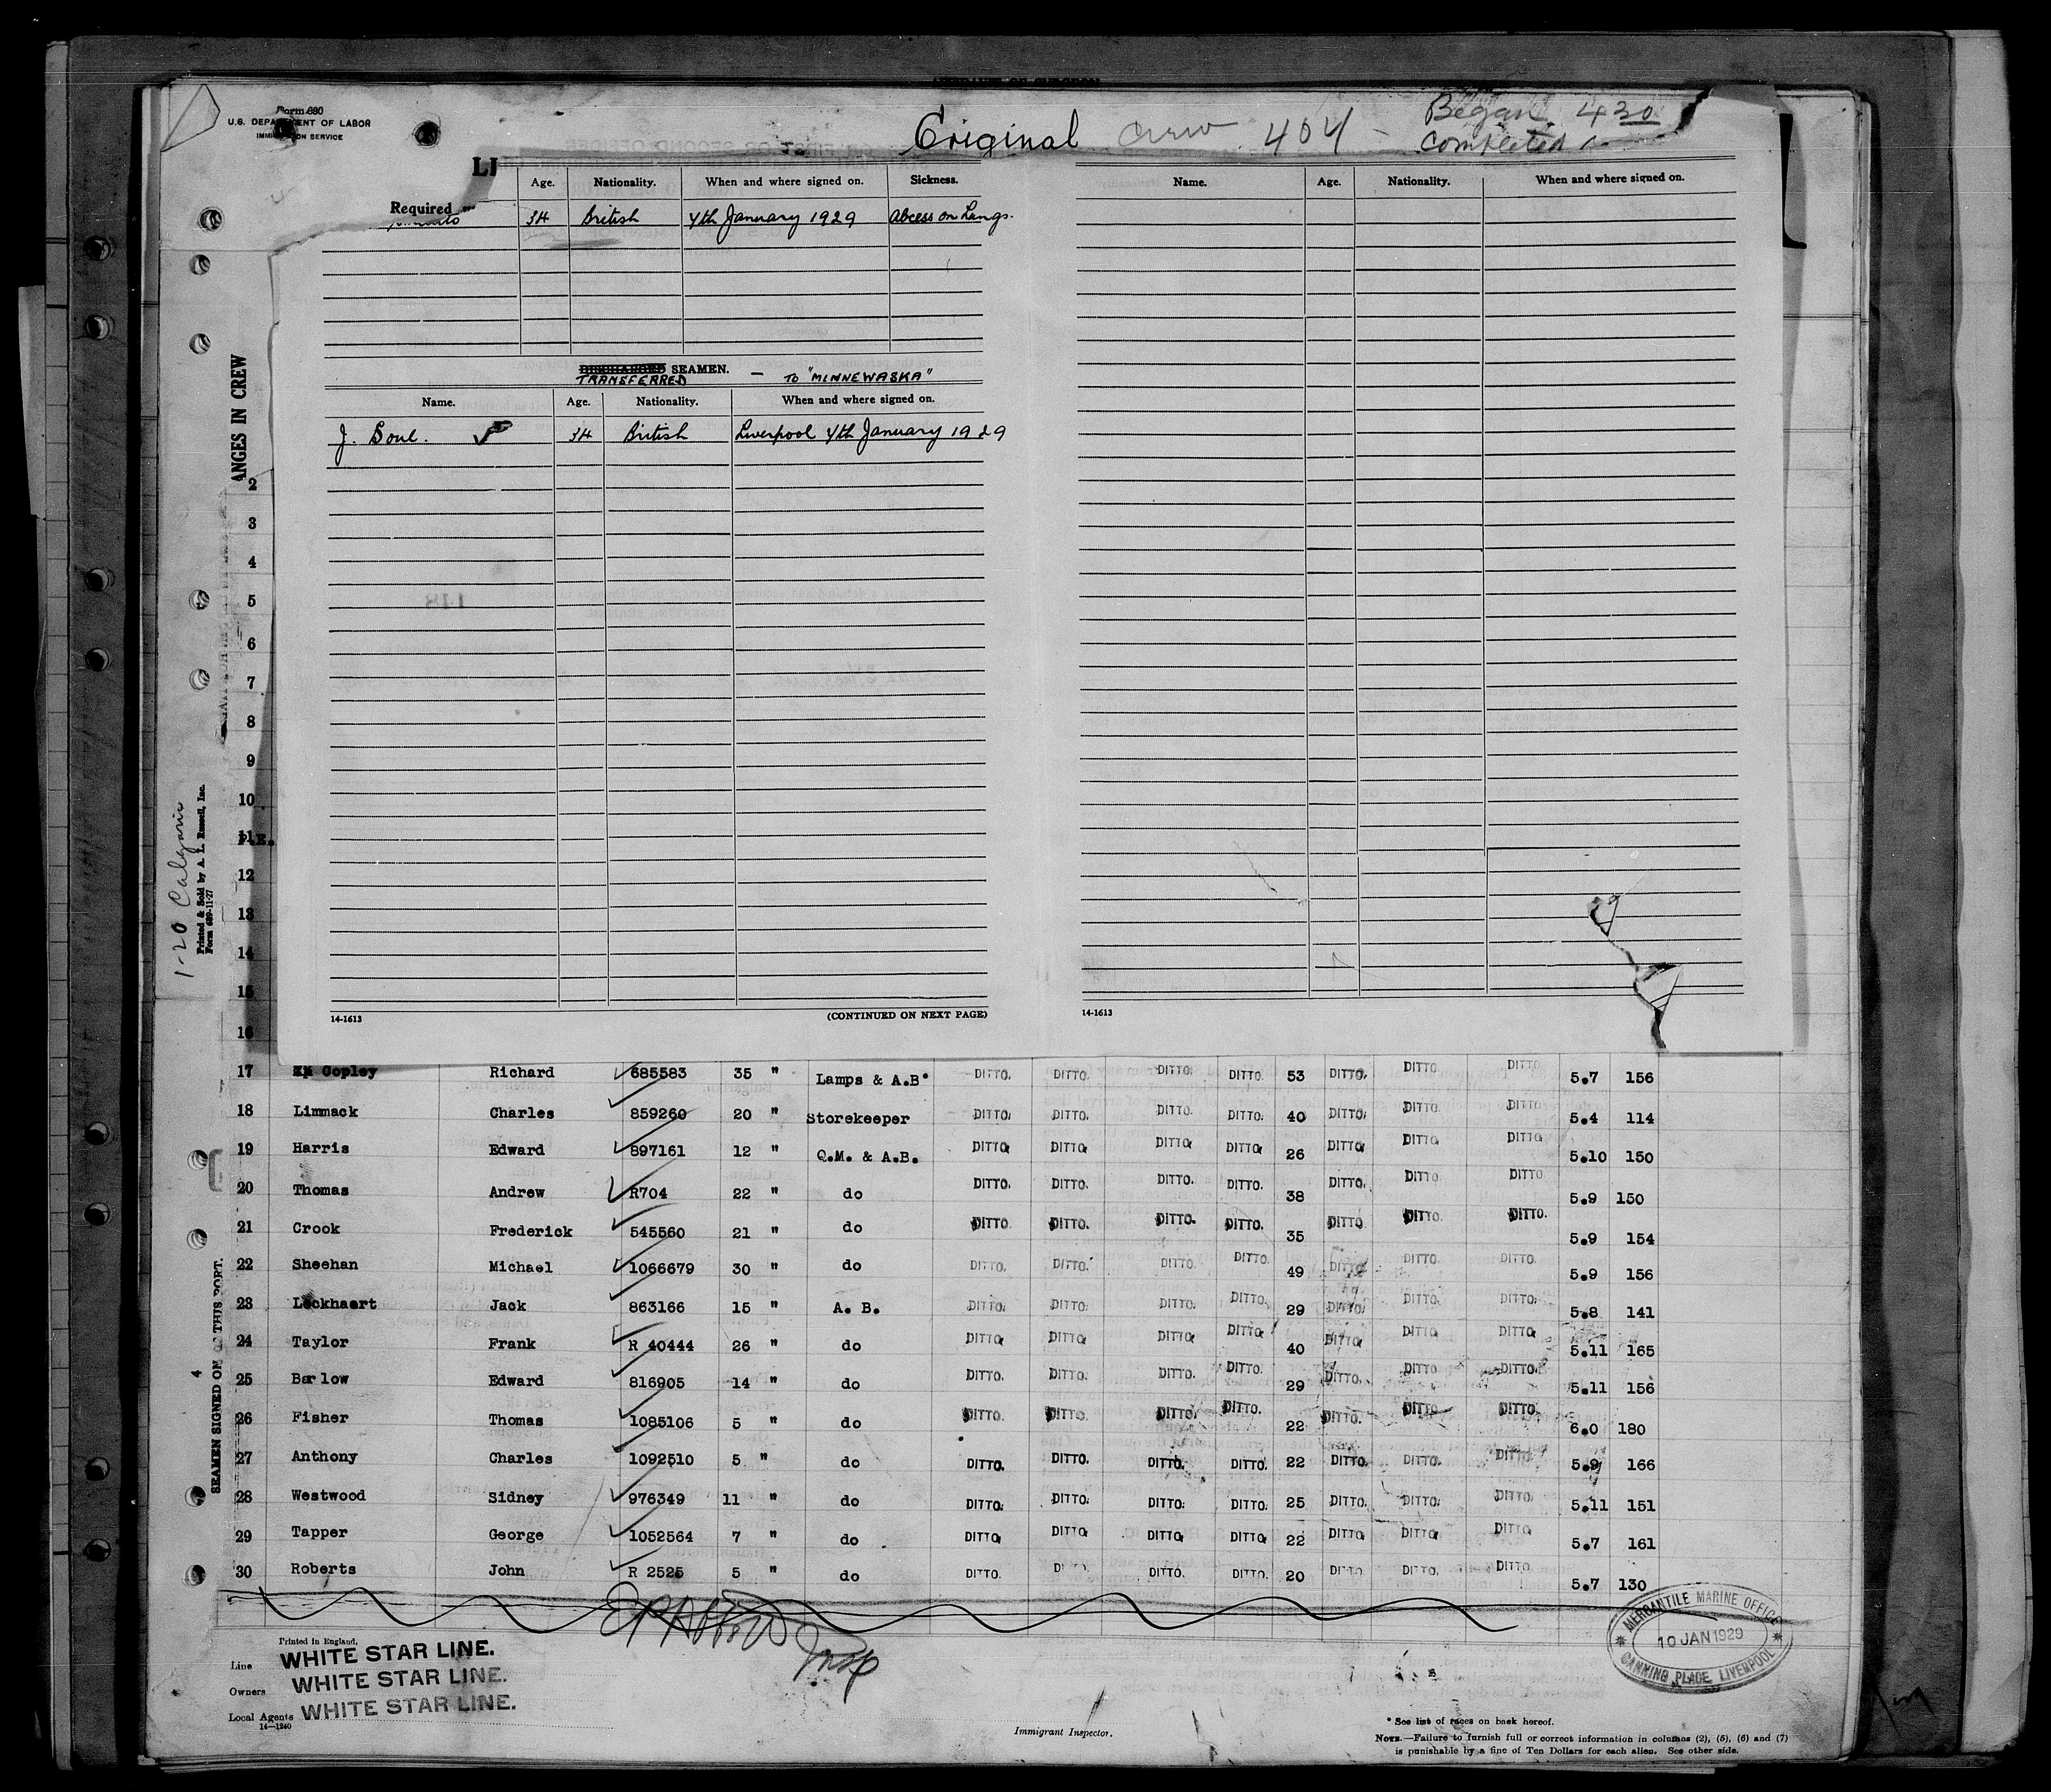 Form 680
U.S. DEPARTMENT OF LABOR
IMMIGRATION SERVICE
Original crew 404 - Began 4 30
Completed
LI
Required
Age. Nationality. When and where signed on. Sickness.
34 British 4th January 1929 Abcess on Lungs.
Name. Age. Nationality. When and where signed on.
DISCHARGED SEAMEN.
TRANSFERRED — TO "MINNEWASKA"
Name. Age. Nationality. When and where signed on.
J. Soul. 34 British Liverpool 4th January 1929
ANGES IN CREW
2
3
4
5
6
7
8
9
10
11
12
13
14
15
16
1-20 Calgaric
Printed & Sold by A. L. Russell, Inc.
Form 689-11-27
14-1613 (CONTINUED ON NEXT PAGE)
14-1613
17 Copley Richard 685583 35 " Lamps & A.B. DITTO. DITTO. DITTO. DITTO. 53 DITTO. DITTO. DITTO. 5.7 156
18 Limmack Charles 859260 20 " Storekeeper DITTO. DITTO. DITTO. DITTO. 40 DITTO. DITTO. DITTO. 5.4 114
19 Harris Edward 897161 12 " Q.M. & A.B. DITTO. DITTO. DITTO. DITTO. 26 DITTO. DITTO. DITTO. 5.10 150
20 Thomas Andrew R704 22 " do DITTO. DITTO. DITTO. DITTO. 38 DITTO. DITTO. DITTO. 5.9 150
21 Crook Frederick 545560 21 " do DITTO. DITTO. DITTO. DITTO. 35 DITTO. DITTO. DITTO. 5.9 154
22 Sheehan Michael 1066679 30 " do DITTO. DITTO. DITTO. DITTO. 49 DITTO. DITTO. DITTO. 5.9 156
23 Lockhaert Jack 863166 15 " A. B. DITTO. DITTO. DITTO. DITTO. 29 DITTO. DITTO. DITTO. 5.8 141
24 Taylor Frank R 40444 26 " do DITTO. DITTO. DITTO. DITTO. 40 DITTO. DITTO. DITTO. 5.11 165
25 Barlow Edward 816905 14 " do DITTO. DITTO. DITTO. DITTO. 29 DITTO. DITTO. DITTO. 5.11 156
26 Fisher Thomas 1085106 5 " do DITTO. DITTO. DITTO. DITTO. 22 DITTO. DITTO. DITTO. 6.0 180
27 Anthony Charles 1092510 5 " do DITTO. DITTO. DITTO. DITTO. 22 DITTO. DITTO. DITTO. 5.9 166
28 Westwood Sidney 976349 11 " do DITTO. DITTO. DITTO. DITTO. 25 DITTO. DITTO. DITTO. 5.11 151
29 Tapper George 1052564 7 " do DITTO. DITTO. DITTO. DITTO. 22 DITTO. DITTO. DITTO. 5.7 161
30 Roberts John R 2525 5 " do DITTO. DITTO. DITTO. DITTO. 20 DITTO. DITTO. DITTO. 5.7 130
4
SEAMEN SIGNED ON THIS PORT.
Printed in England.
Line WHITE STAR LINE.
Owners WHITE STAR LINE.
Local Agents WHITE STAR LINE.
14—1240
Insp
Immigrant Inspector.
MERCANTILE MARINE OFFICE
10 JAN 1929
CANNING PLACE, LIVERPOOL
* See list of races on back hereof.
NOTE.—Failure to furnish full or correct information in columns (2), (5), (6) and (7)
is punishable by a fine of Ten Dollars for each alien. See other side.